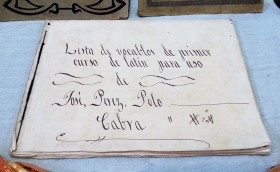 Lista de vocablos de primer
curso de latin para uso
de
José, Perez, Polo
Cabra